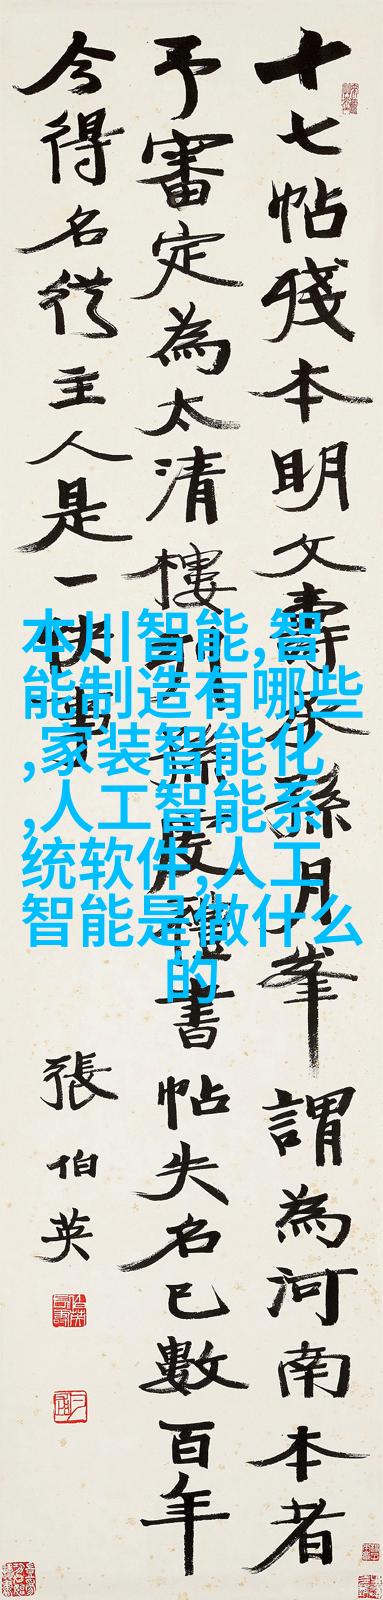 十七帖殘本明文壽承孫月峯謂為河南本者
予審定為太清樓孫虔禮書帖失名已數百年
今得名從主人是一快事
張伯英
本川智能,智
能制造有哪些
,家装智能化
,人工智能系
统软件,人工
智能是做什么
的